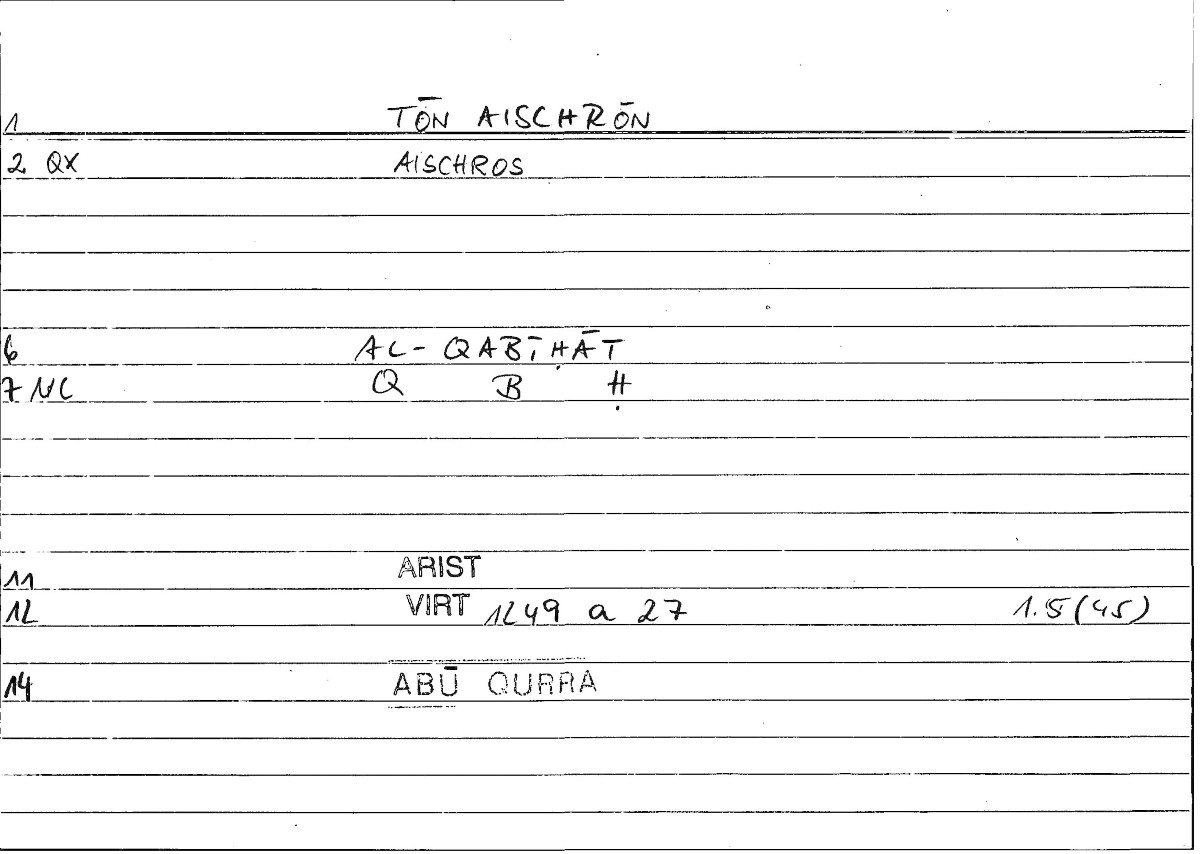 1 TŌN AISCHRŌN
2 QX AISCHROS
6 AL-QABĪḤĀT
7 NC Q B Ḥ
11 ARIST
12 VIRT 1249 a 27 1.5(45)
14 ABŪ QURRA